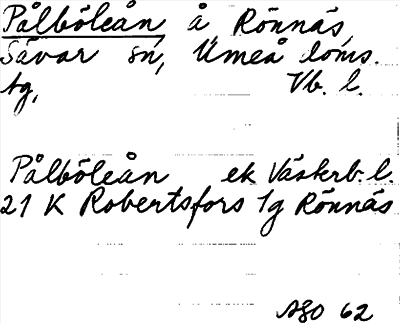 Pålböleån å, Rönnäs,
Sävar sn, Umeå doms.
tg, Vb. l.
Pålböleån ek Västerb. l.
21 K Robertsfors 1g Rönnäs
ASO 62